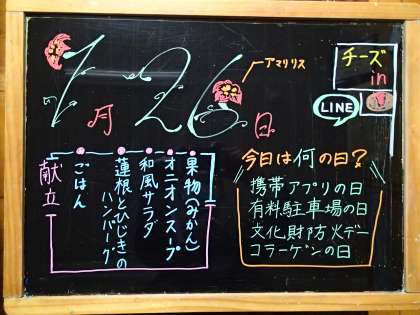 1月26日
アマリリス
チーズ
in
LINE
献立
果物(みかん)
オニオンスープ
和風サラダ
蓮根とひじきの
ハンバーグ
ごはん
今日は何の日?
携帯アプリの日
有料駐車場の日
文化財防火デー
コラーゲンの日